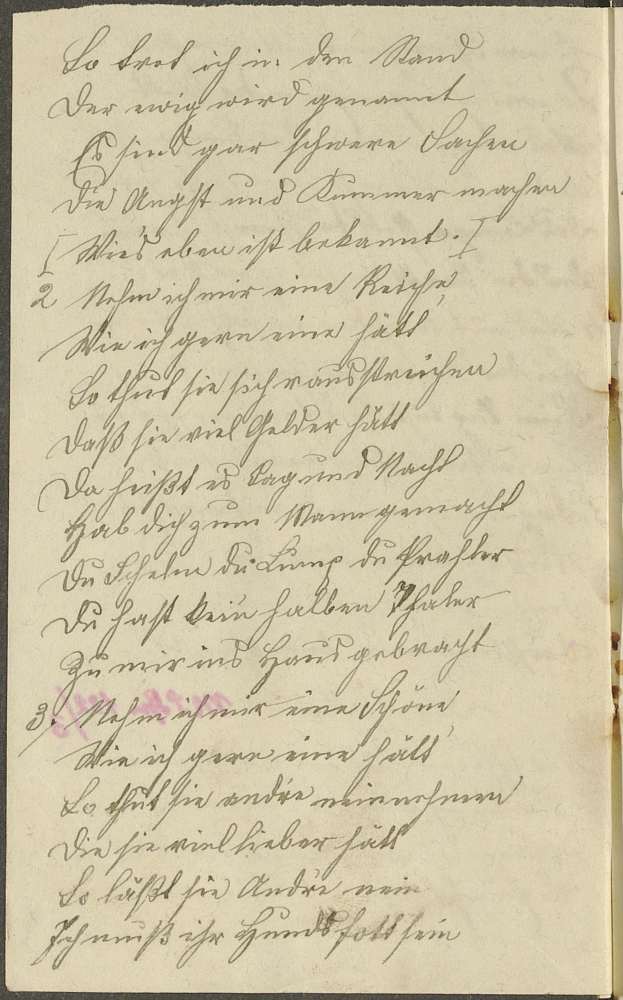 So tret ich in den Stand
Der ewig wird genannt
Es sind gar schwere Sachen
Die Angst und Kummer machen
[ Wie's eben ist bekannt. ]
2 Nehm ich mir eine Reiche,
Wie ich gern eine hätt
So thut sie sich rausstreichen
Daß sie viel Gelder hätt
Da heißt es Tag und Nacht
Hab dich zum Mann gemacht
Du Schelm du Lump du Prahler
Du hast kein halben Thaler
Zu mir ins Haus gebracht
3. Nehm ich mir eine Schöne
Wie ich gern eine hätt
So thut sie andre neinnehmen
Die sie viel lieber hätt
So läßt sie Andre nein
Ich muß ihr Hundsfott sein